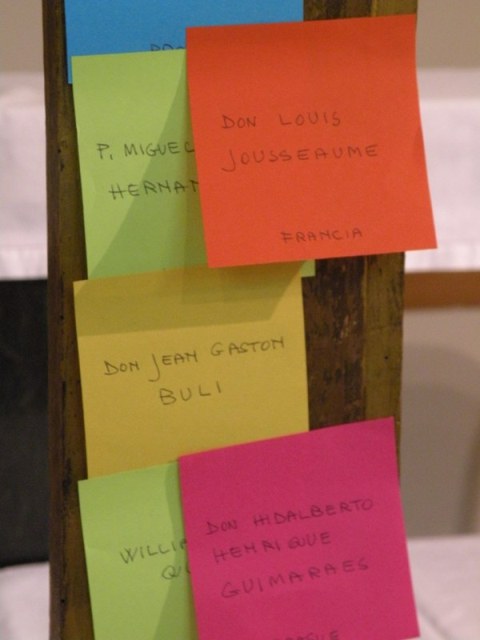 P. MIGUEL
DON LOUIS
JOUSSEAUME
FRANCIA
DON JEAN GASTON
BULI
DON HIDALBERTO
HENRIQUE
GUIMARAES